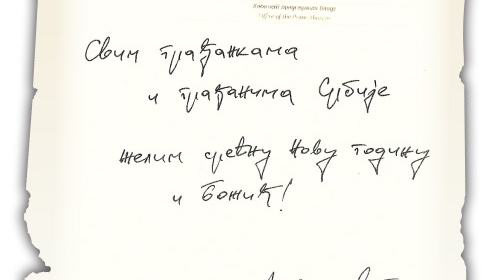 Кабинет председника Владе
Office of the Prime Minister
Свим грађанкама
и грађанима Србије
желим срећну Нову годину
и Божић!